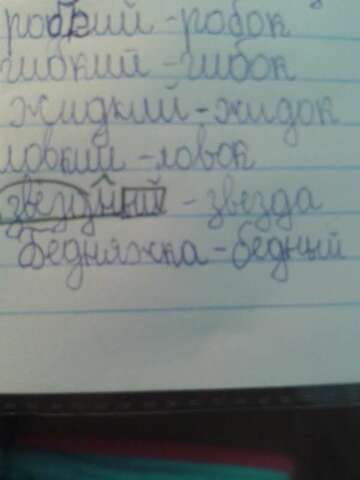 робкий - робок
гибкий - гибок
жидкий - жидок
ловкий - ловок
звездный - звезда
Бедняжка - бедный